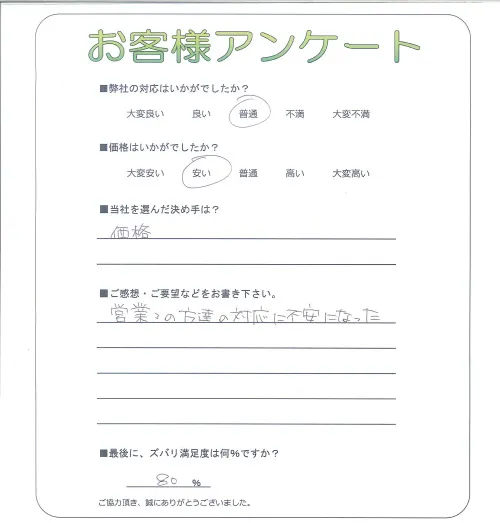 お客様アンケート
■弊社の対応はいかがでしたか？
大変良い 良い 普通 不満 大変不満
■価格はいかがでしたか？
大変安い 安い 普通 高い 大変高い
■当社を選んだ決め手は？
価格
■ご感想・ご要望などをお書き下さい。
営業の方達の対応に不安になった
■最後に、ズバリ満足度は何%ですか？
80 %
ご協力頂き、誠にありがとうございました。